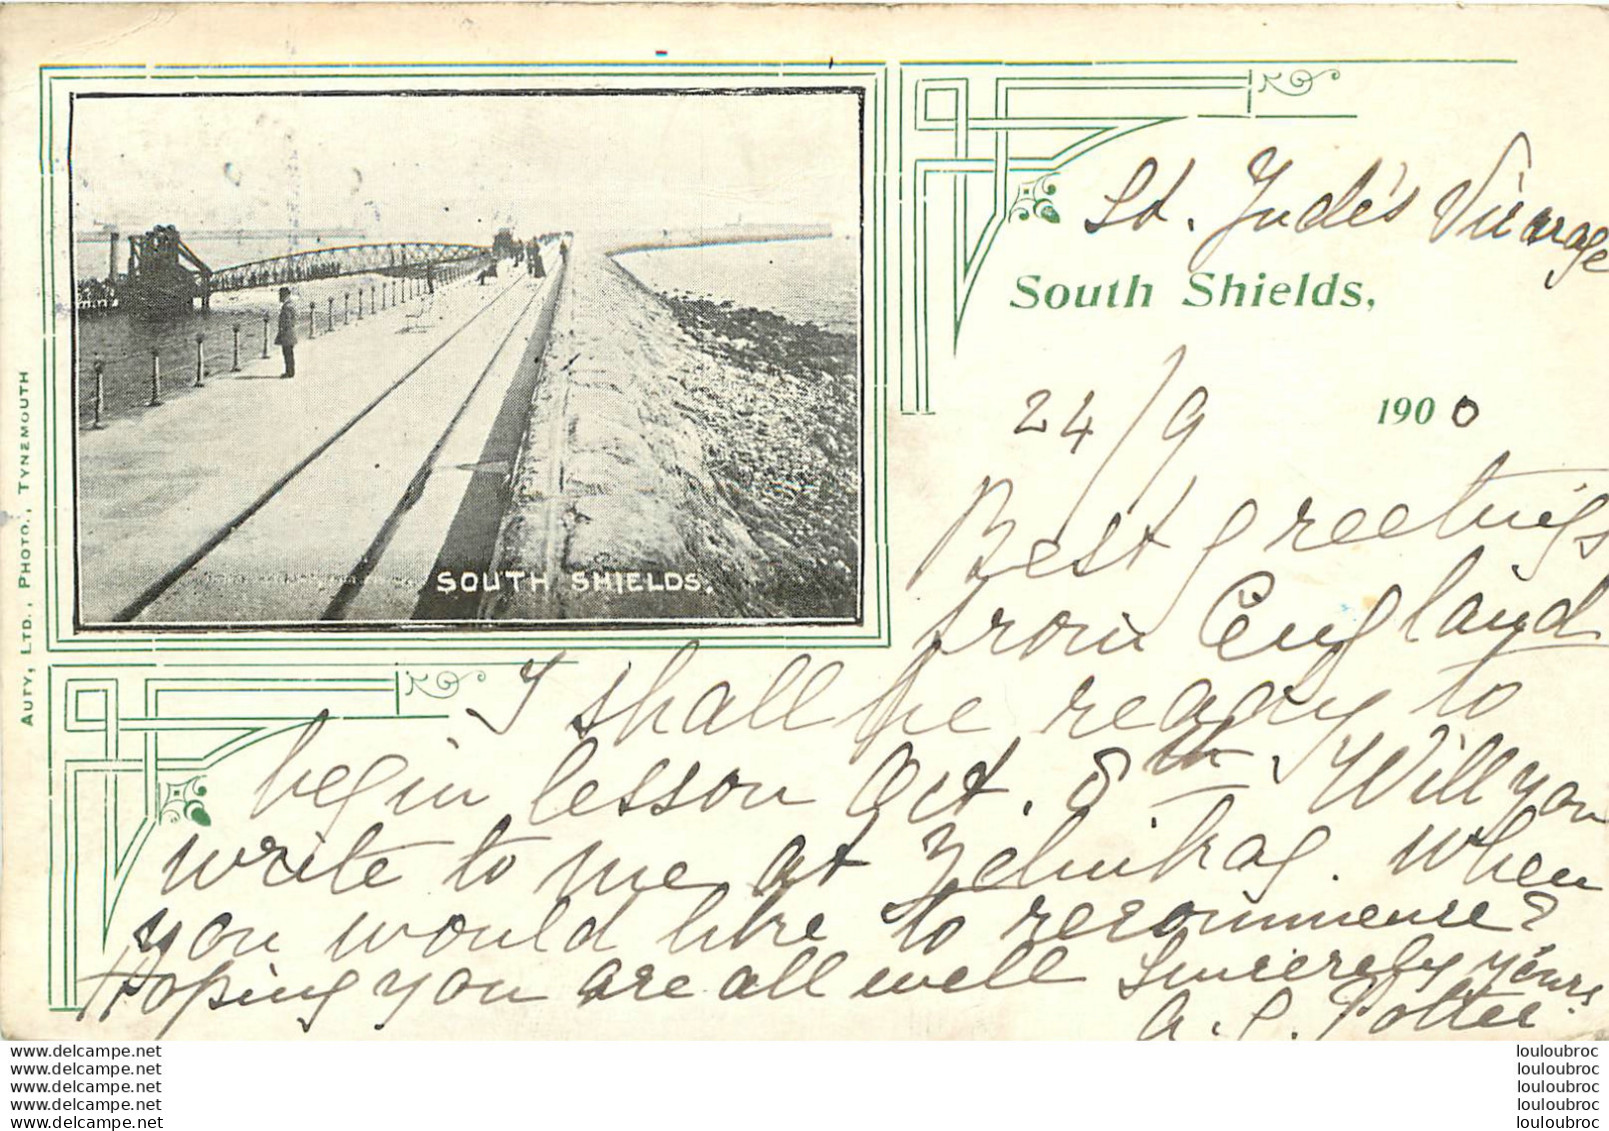 St. Jude's Vicarage
South Shields,
24/9 1900
Best greetings
from England
I shall be ready to
begin lesson Oct. 8th. Will you
write to me at When
you would like to recommence?
Hoping you are all well Sincerely yours
A. E. Potter.
SOUTH SHIELDS.
AUTY, LTD., PHOTO., TYNEMOUTH
www.delcampe.net
www.delcampe.net
www.delcampe.net
www.delcampe.net
www.delcampe.net
louloubroc
louloubroc
louloubroc
louloubroc
louloubroc